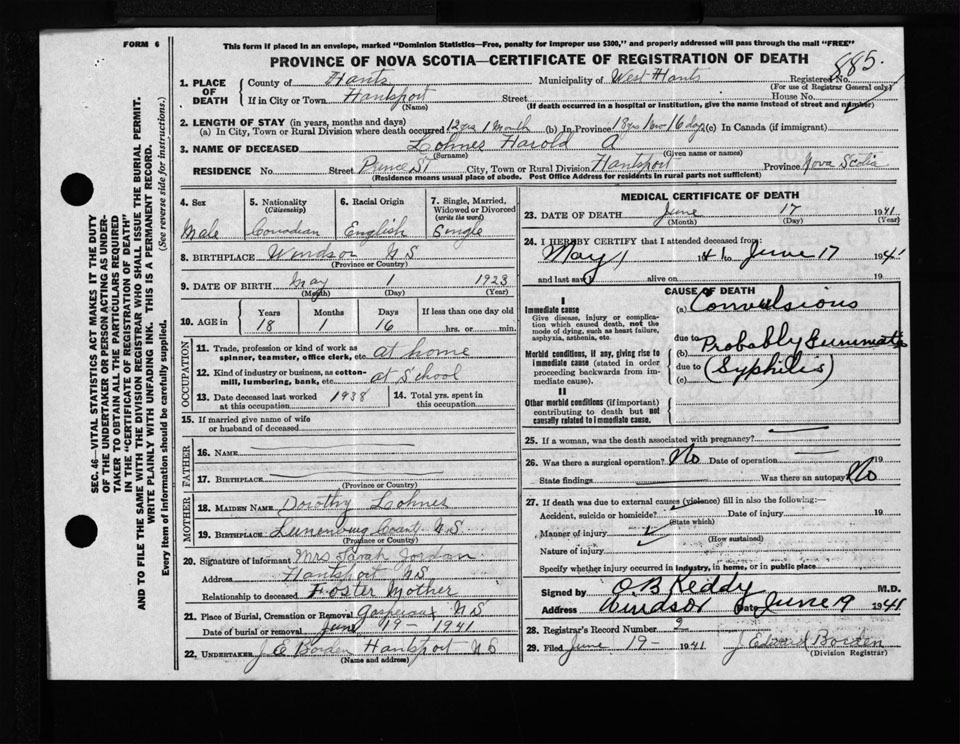 FORM 6
This form if placed in an envelope, marked "Dominion Statistics—Free, penalty for improper use $300," and properly addressed will pass through the mail "FREE"
PROVINCE OF NOVA SCOTIA—CERTIFICATE OF REGISTRATION OF DEATH
885.
1. PLACE OF DEATH
County of Hants Municipality of West Hants Registered No.
(For use of Registrar General only)
If in City or Town Hantsport Street House No.
(Name) (If death occurred in a hospital or institution, give the name instead of street and number)
2. LENGTH OF STAY (in years, months and days)
(a) In City, Town or Rural Division where death occurred 12 yrs 1 Month (b) In Province 18 yrs 1 mo 16 days (c) In Canada (if immigrant)
3. NAME OF DECEASED Lohnes Harold A
(Surname) (Given name or names)
RESIDENCE No. Street Prince St City, Town or Rural Division Hantsport Province Nova Scotia
(Residence means usual place of abode. Post Office Address for residents in rural parts not sufficient)
4. Sex
Male
5. Nationality
(Citizenship)
Canadian
6. Racial Origin
English
7. Single, Married, Widowed or Divorced
(write the word)
Single
8. BIRTHPLACE Windsor N S
(Province or Country)
9. DATE OF BIRTH May 1 1923
(Month) (Day) (Year)
10. AGE in
Years Months Days If less than one day old
18 1 16 hrs. or min.
OCCUPATION
11. Trade, profession or kind of work as
spinner, teamster, office clerk, etc. at home
12. Kind of industry or business, as cotton-
mill, lumbering, bank, etc. at School
13. Date deceased last worked
at this occupation 1938
14. Total yrs. spent in
this occupation
15. If married give name of wife
or husband of deceased
FATHER
16. NAME
17. BIRTHPLACE
(Province or Country)
MOTHER
18. MAIDEN NAME Dorothy Lohnes
19. BIRTHPLACE Lunenburg Count N S
(Province or Country)
20. Signature of informant Mrs Sarah Jordan
Address Hantsport N S
Relationship to deceased Foster Mother
21. Place of Burial, Cremation or Removal Gaspereau N S
Date of burial or removal June 19 - 1941
22. UNDERTAKER J E Borden Hantsport N S
(Name and address)
MEDICAL CERTIFICATE OF DEATH
23. DATE OF DEATH June 17 1941
(Month) (Day) (Year)
24. I HEREBY CERTIFY that I attended deceased from
May 1 41 to June 17 1941
and last saw alive on 19
CAUSE OF DEATH
I
Immediate cause
Give disease, injury or complication which caused death, not the mode of dying, such as heart failure, asphyxia, asthenia, etc.
(a) Convulsions
due to
Morbid conditions, if any, giving rise to immediate cause (stated in order proceeding backwards from immediate cause).
(b) Probably Gummata
due to
(c) (Syphilis)
II
Other morbid conditions (if important) contributing to death but not causally related to immediate cause.
25. If a woman, was the death associated with pregnancy?
26. Was there a surgical operation? No Date of operation 19
State findings Was there an autopsy No
27. If death was due to external causes (violence) fill in also the following:—
Accident, suicide or homicide? Date of injury 19
(State which)
Manner of injury
(How sustained)
Nature of injury
Specify whether injury occurred in industry, in home, or in public place
Signed by C B Reddy M.D.
Address Windsor Date June 19 1941
28. Registrar's Record Number 9
29. Filed June 19 - 1941 J Edward Borden
(Division Registrar)
SEC. 46—VITAL STATISTICS ACT MAKES IT THE DUTY
OF THE UNDERTAKER OR PERSON ACTING AS UNDER-
TAKER TO OBTAIN ALL THE PARTICULARS REQUIRED
IN THE "CERTIFICATE OF REGISTRATION OF DEATH"
AND TO FILE THE SAME WITH THE DIVISION REGISTRAR WHO SHALL ISSUE THE BURIAL PERMIT.
WRITE PLAINLY WITH UNFADING INK. THIS IS A PERMANENT RECORD.
Every item of information should be carefully supplied. (See reverse side for instructions.)